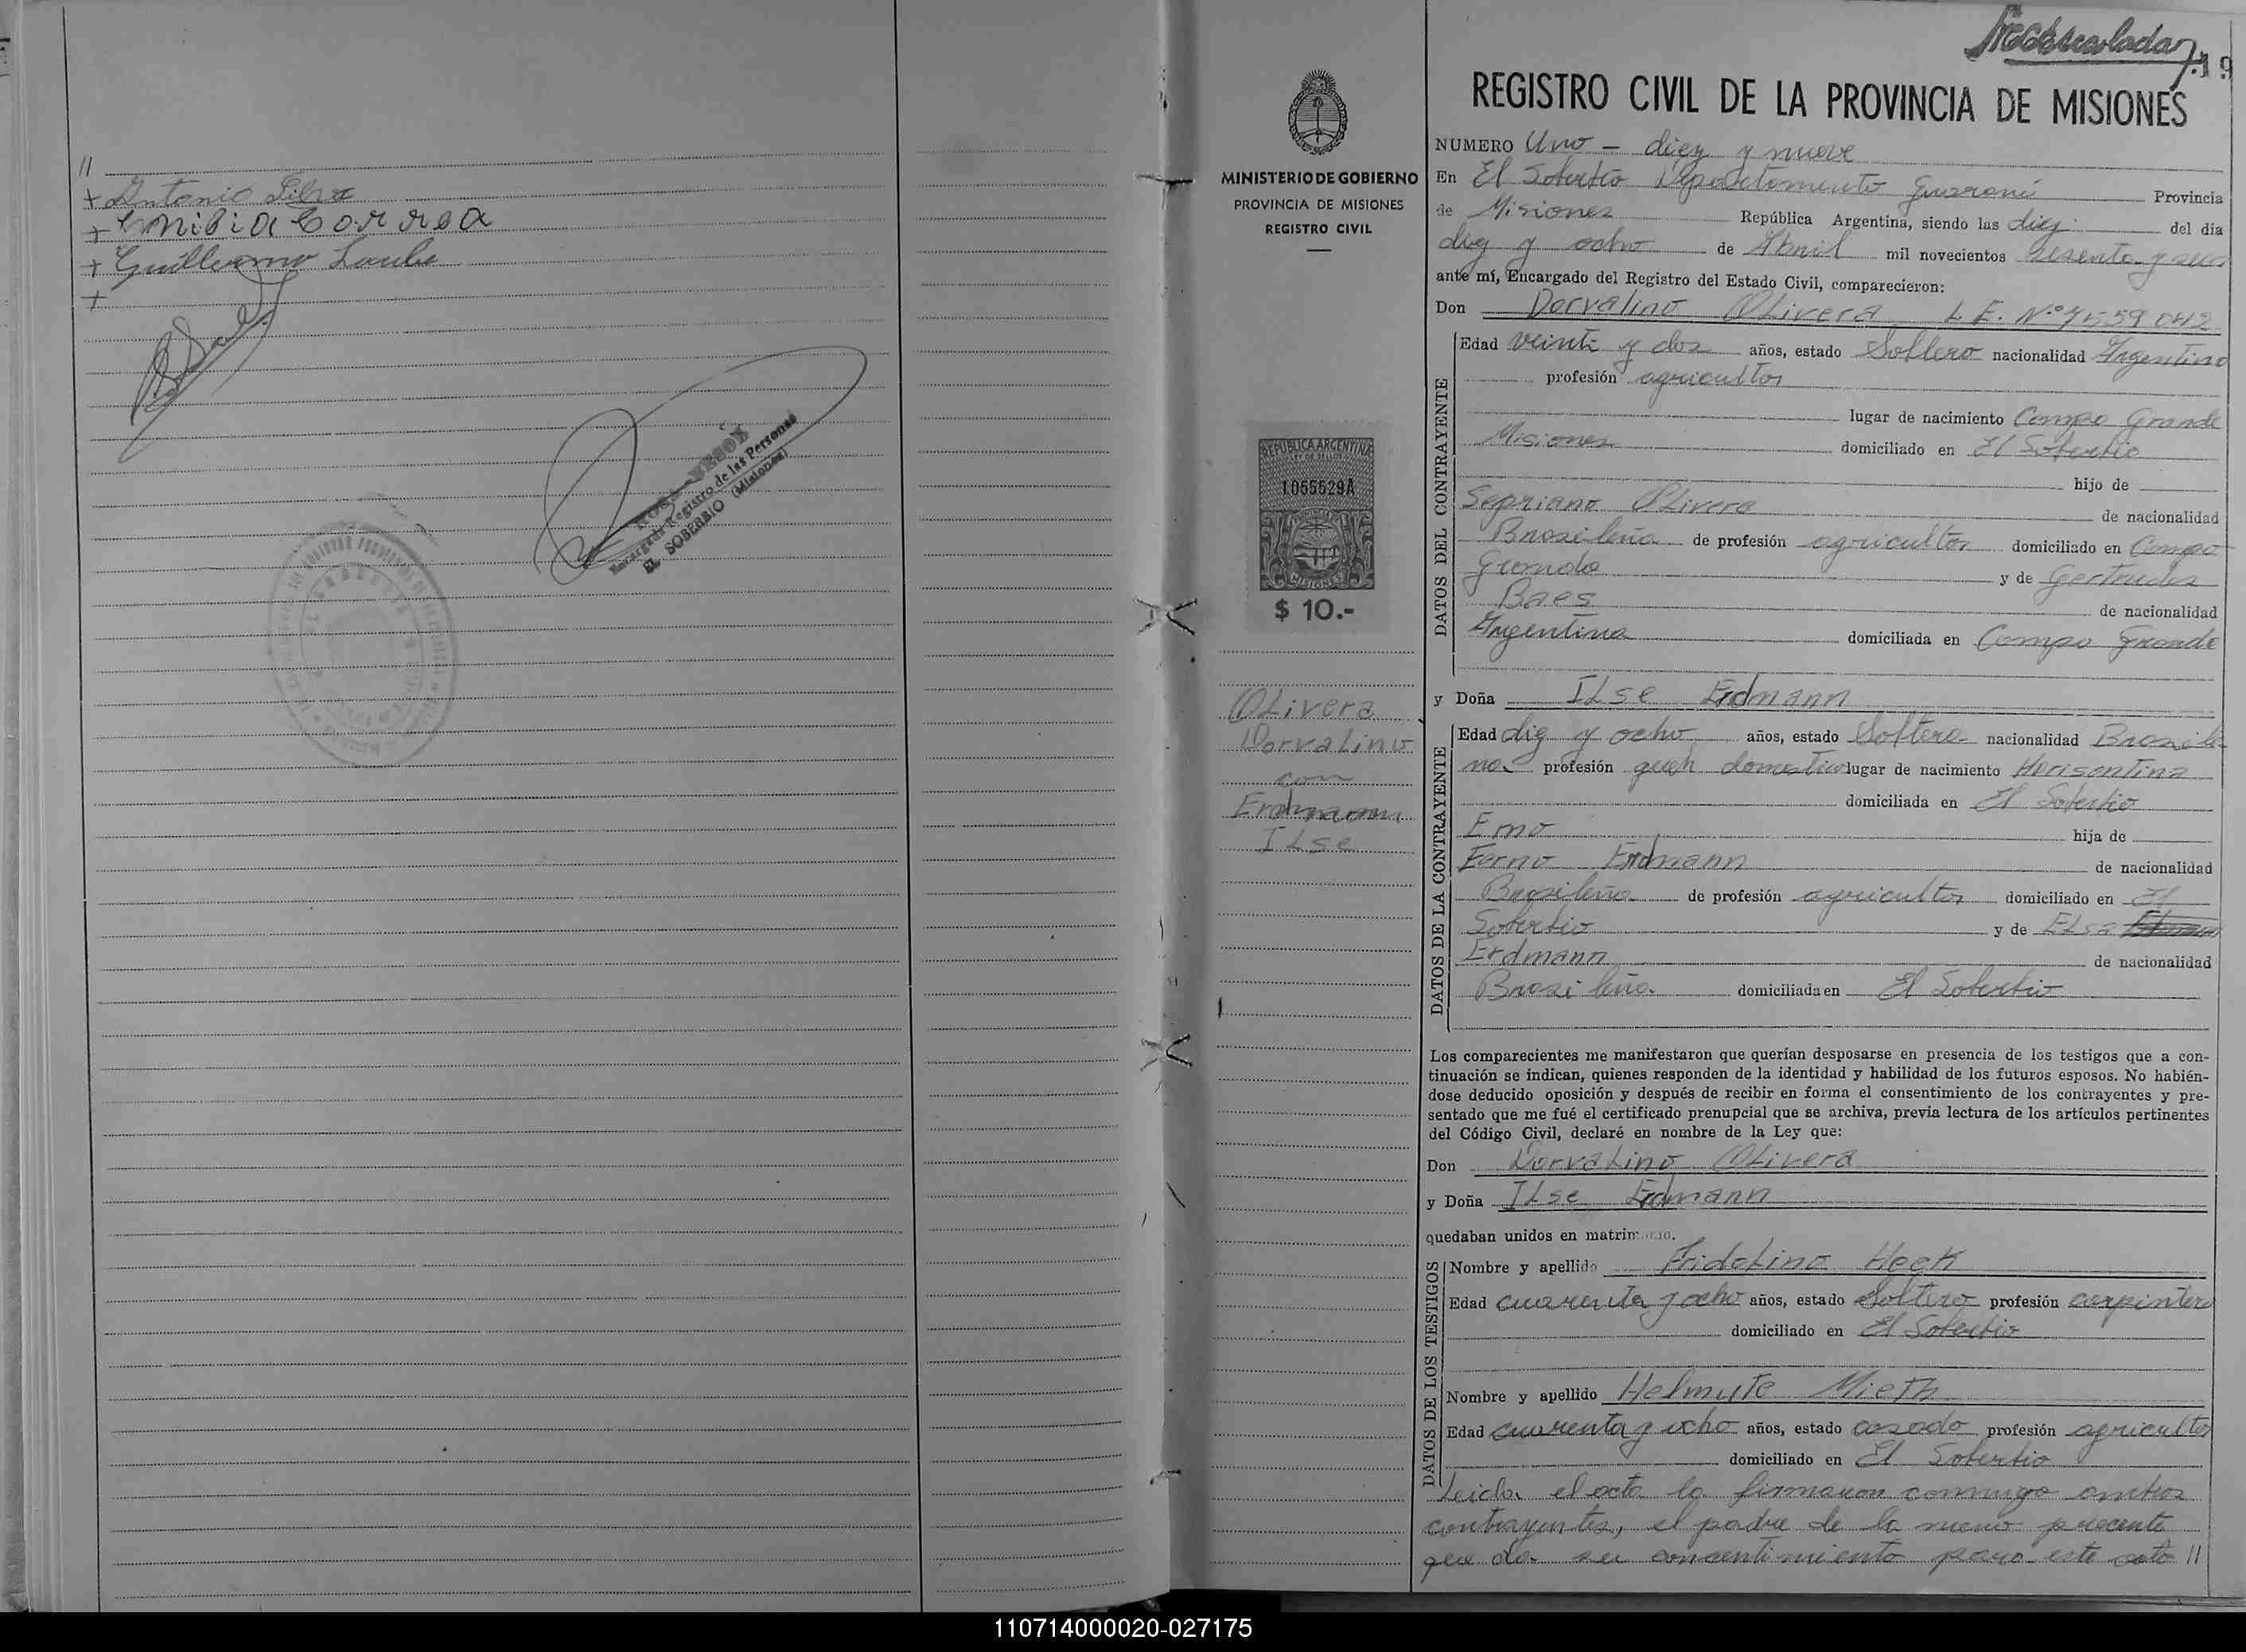 //
+ Antonio Silva
+ Emibia Correa
+ Guillermo
+
Encargado Registro de las Personas
EL SOBERBIO (Misiones)
MINISTERIO DE GOBIERNO
PROVINCIA DE MISIONES
REGISTRO CIVIL
REPUBLICA ARGENTINA
1055529A
MISIONES
$ 10.-
OLivera
DorvaLino
con
Erdmann
ILse
19
REGISTRO CIVIL DE LA PROVINCIA DE MISIONES
NUMERO Uno - diez y nueve
En El Soberbio Departamento Guaraní Provincia
de Misiones República Argentina, siendo las diez del día
diez y ocho de Abril mil novecientos sesenta y
ante mí, Encargado del Registro del Estado Civil, comparecieron:
Don Dorvalino OLivera L E. N.º 7559 042
DATOS DEL CONTRAYENTE
Edad veinti y dos años, estado Soltero nacionalidad Argentino
profesión agricultor
lugar de nacimiento Campo Grande
Misiones domiciliado en El Soberbio
hijo de
Sepriano OLivera de nacionalidad
Brasileña de profesión agricultor domiciliado en Campo
Grande y de Gertrudes
Baes de nacionalidad
Argentina domiciliada en Campo Grande
y Doña ILse Erdmann
DATOS DE LA CONTRAYENTE
Edad diez y ocho años, estado Soltera nacionalidad Brasile
na profesión domestico lugar de nacimiento Horisontina
domiciliada en El Soberbio
Erno hija de
Erdmann de nacionalidad
Brasileña de profesión agricultor domiciliado en El
Soberbio y de ELsa
Erdmann de nacionalidad
Brasileña domiciliada en El Soberbio
Los comparecientes me manifestaron que querían desposarse en presencia de los testigos que a con-
tinuación se indican, quienes responden de la identidad y habilidad de los futuros esposos. No habién-
dose deducido oposición y después de recibir en forma el consentimiento de los contrayentes y pre-
sentado que me fué el certificado prenupcial que se archiva, previa lectura de los artículos pertinentes
del Código Civil, declaré en nombre de la Ley que:
Don DorvaLino OLivera
y Doña ILse Erdmann
quedaban unidos en matrimonio.
DATOS DE LOS TESTIGOS
Nombre y apellido FridoLino Heck
Edad cuarenta y ocho años, estado Soltero profesión carpintero
domiciliado en El Soberbio
Nombre y apellido Helmute Mieth
Edad cuarenta y ocho años, estado casado profesión agricultor
domiciliado en El Soberbio
Leida el acta la firmaron conmigo ambos
contrayentes, el padre de la menor precente
que da su concentimiento para este acto //
110714000020-027175